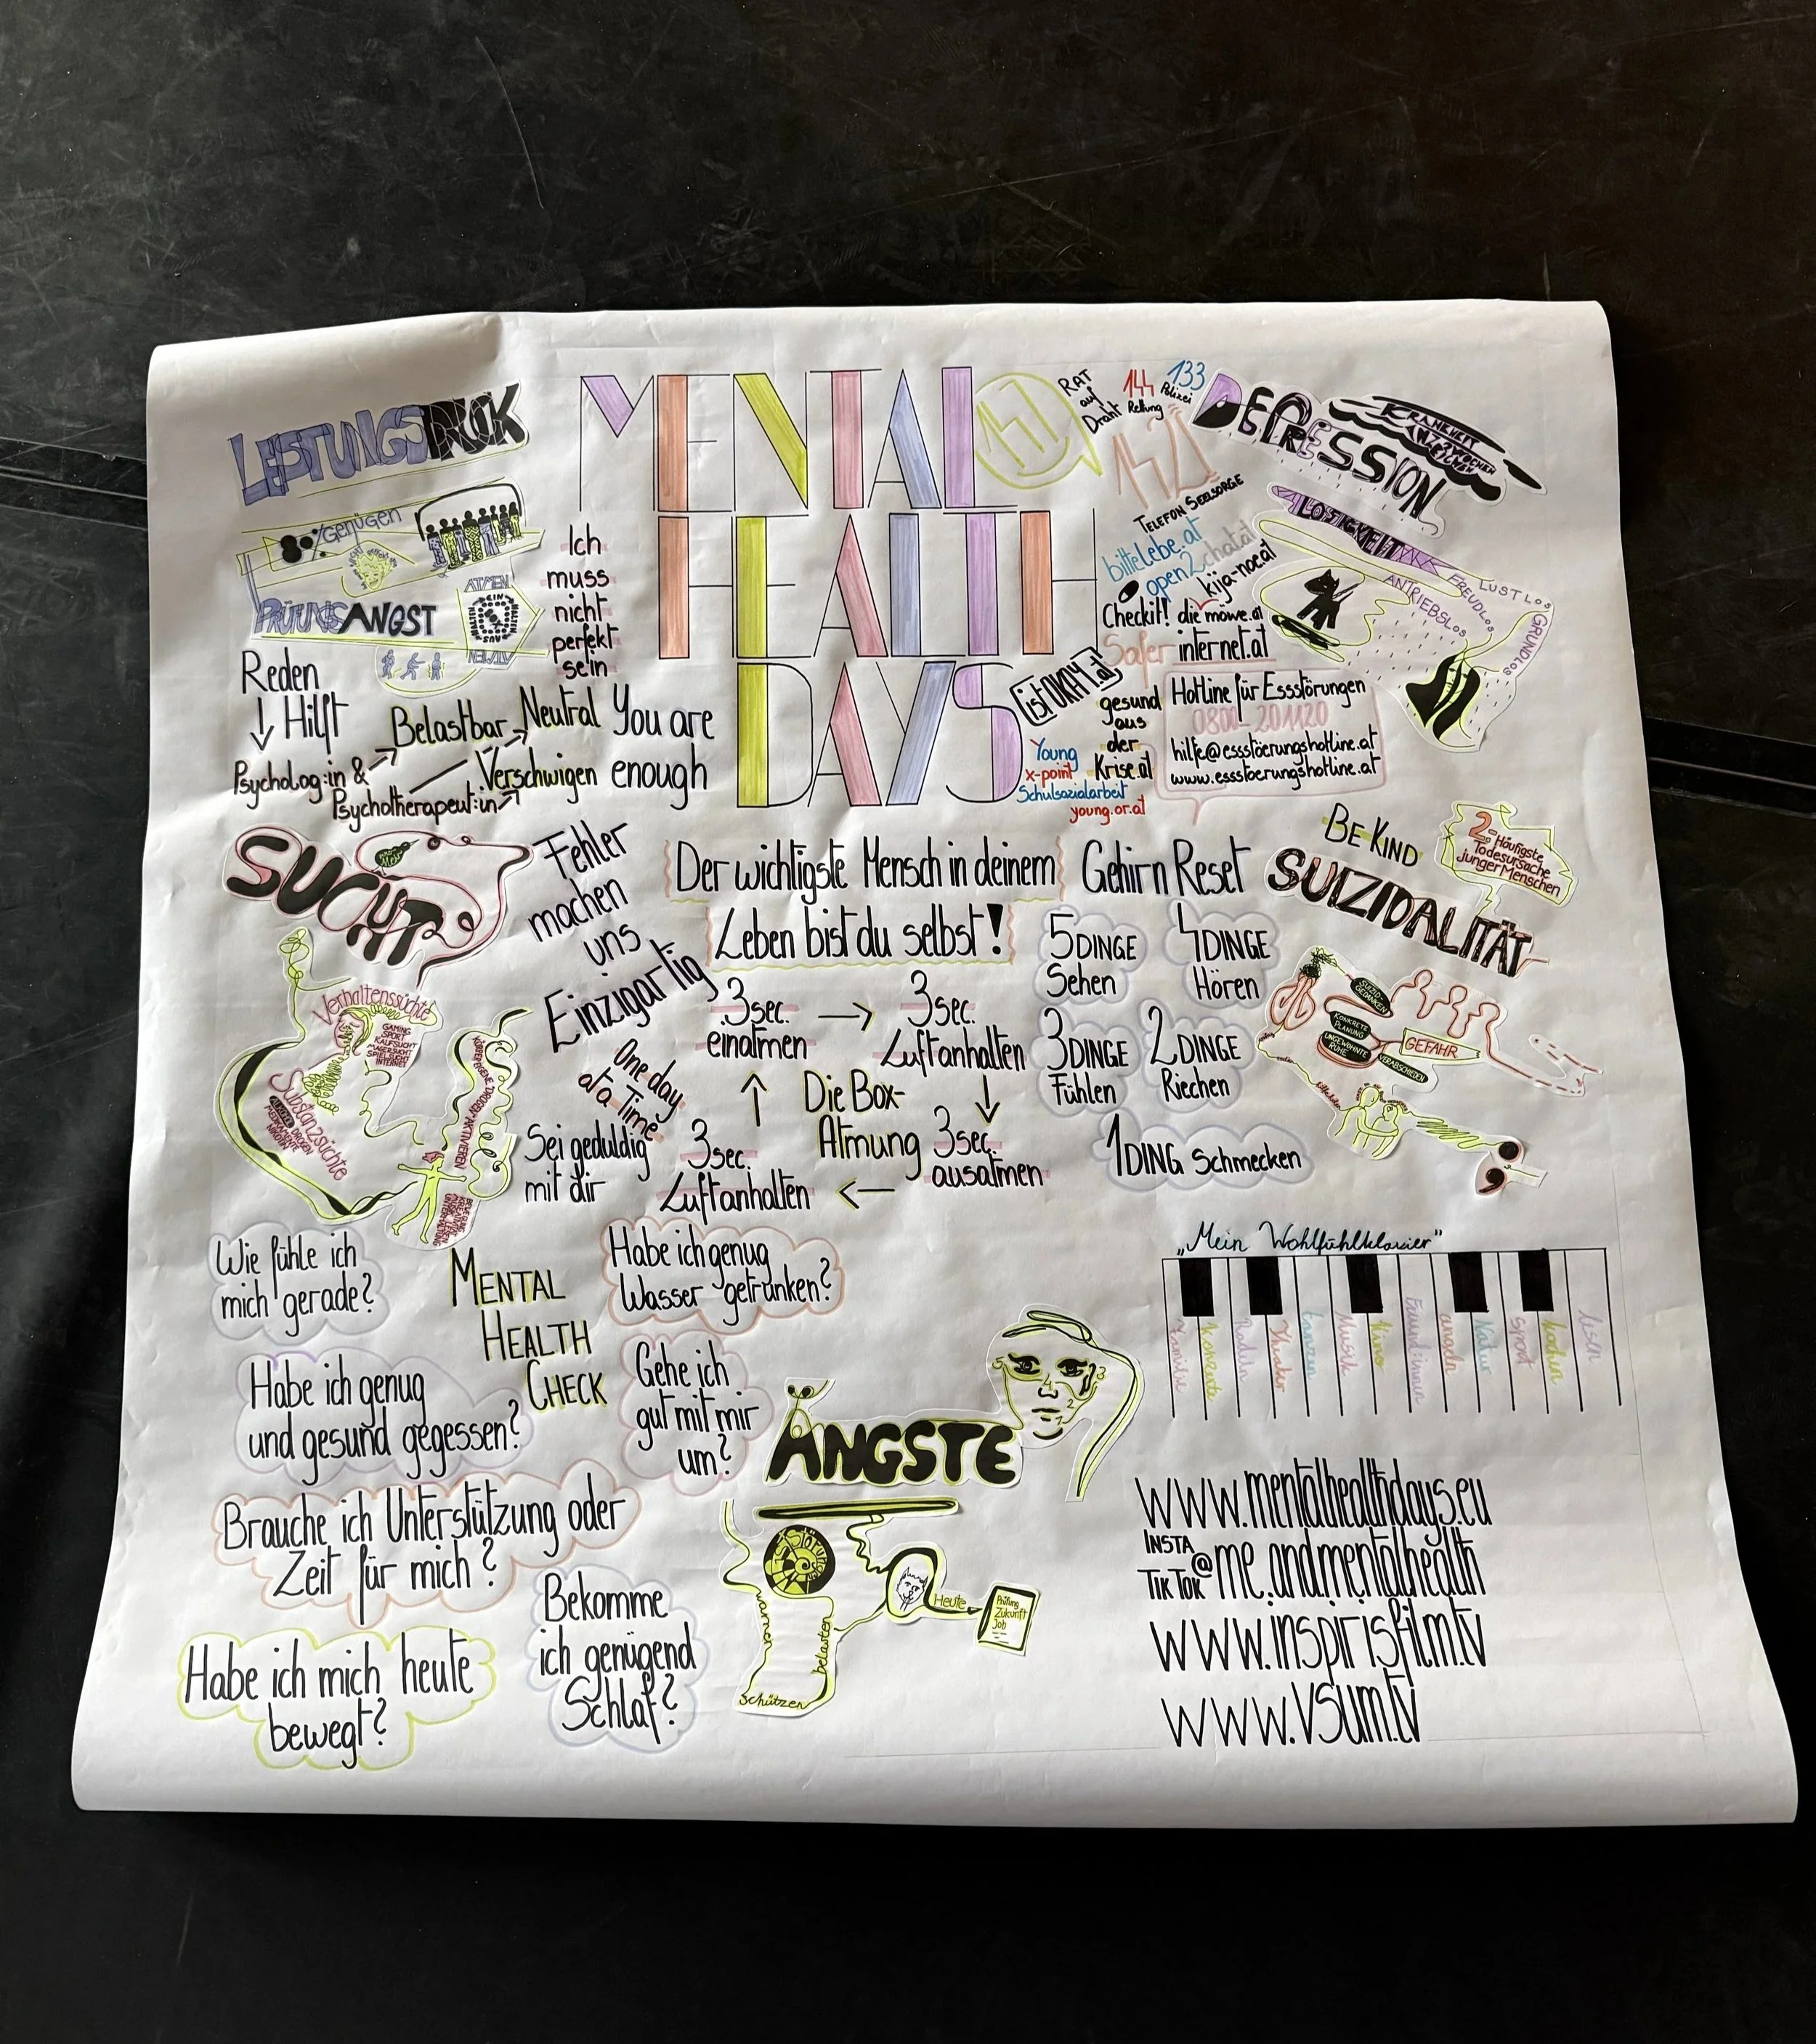 MENTAL
HEALTH
DAYS
LEISTUNGSDRUCK
GENÜGEN
PRÜFUNGSANGST
ATMEN
Ich
muss
nicht
perfekt
sein
Reden
Hilft
Psycholog:in &
Psychotherapeut:in
Belastbar
Neutral
Verschwigen
You are
enough
147
RAT
auf
Draht
144
Rettung
133
Polizei
142
TELEFON SEELSORGE
bittelebe.at
open2chat.at
kija-noe.at
Checkit!
die möwe.at
Safer internet.at
istOKAY.at
gesund
aus
der
Krise.at
Young
x-point
Schulsozialarbeit
young.or.at
Hotline für Essstörungen
0800-201120
hilfe@essstoerungshotline.at
www.essstoerungshotline.at
DEPRESSION
KRANKHEIT
2 WOCHEN
LOSIGKEIT
ANTRIEBSLOS
FREUDLOS
LUSTLOS
GRUNDLOS
SUCHT
Verhaltenssüchte
GAMING
SPORT
KAUFSUCHT
MAGERSUCHT
SPIELSUCHT
INTERNET
Substanzsüchte
ALKOHOL
DROGEN
MEDIKAMENTE
NIKOTIN
KÖRPEREIGENE "DROGEN" AKTIVIEREN
Fehler
machen
uns
Einzigartig
One day
at a Time
Sei geduldig
mit dir
Der wichtigste Mensch in deinem
Leben bist du selbst!
3sec.
einatmen
3sec.
Luftanhalten
Die Box-
Atmung
3sec.
ausatmen
3sec.
Luftanhalten
Gehirn Reset
5 DINGE
Sehen
4 DINGE
Hören
3 DINGE
Fühlen
2 DINGE
Riechen
1 DING Schmecken
BE KIND
2-Häufigste
Todesursache
junger Menschen
SUIZIDALITÄT
SUIZID-
GEDANKEN
KONKRETE
PLANUNG
UNGEWOHNTE
RUHE
VERABSCHIEDEN
GEFAHR
MENTAL
HEALTH
CHECK
Wie fühle ich
mich gerade?
Habe ich genug
Wasser getrunken?
Habe ich genug
und gesund gegessen?
Gehe ich
gut mit mir
um?
Brauche ich Unterstützung oder
Zeit für mich?
Habe ich mich heute
bewegt?
Bekomme
ich genügend
Schlaf?
ÄNGSTE
Störungen
warnen
schützen
belasten
Heute
Prüfung
Zukunft
Job
„Mein Wohlfühlklavier"
Familie
Konzerte
Radeln
Theater
tanzen
Musik
Kino
Freund:innen
angeln
Natur
sport
kochen
lesen
www.mentalhealthdays.eu
INSTA
TIKTOK
@me.andmentalhealth
www.inspirisfilm.tv
www.vsum.tv